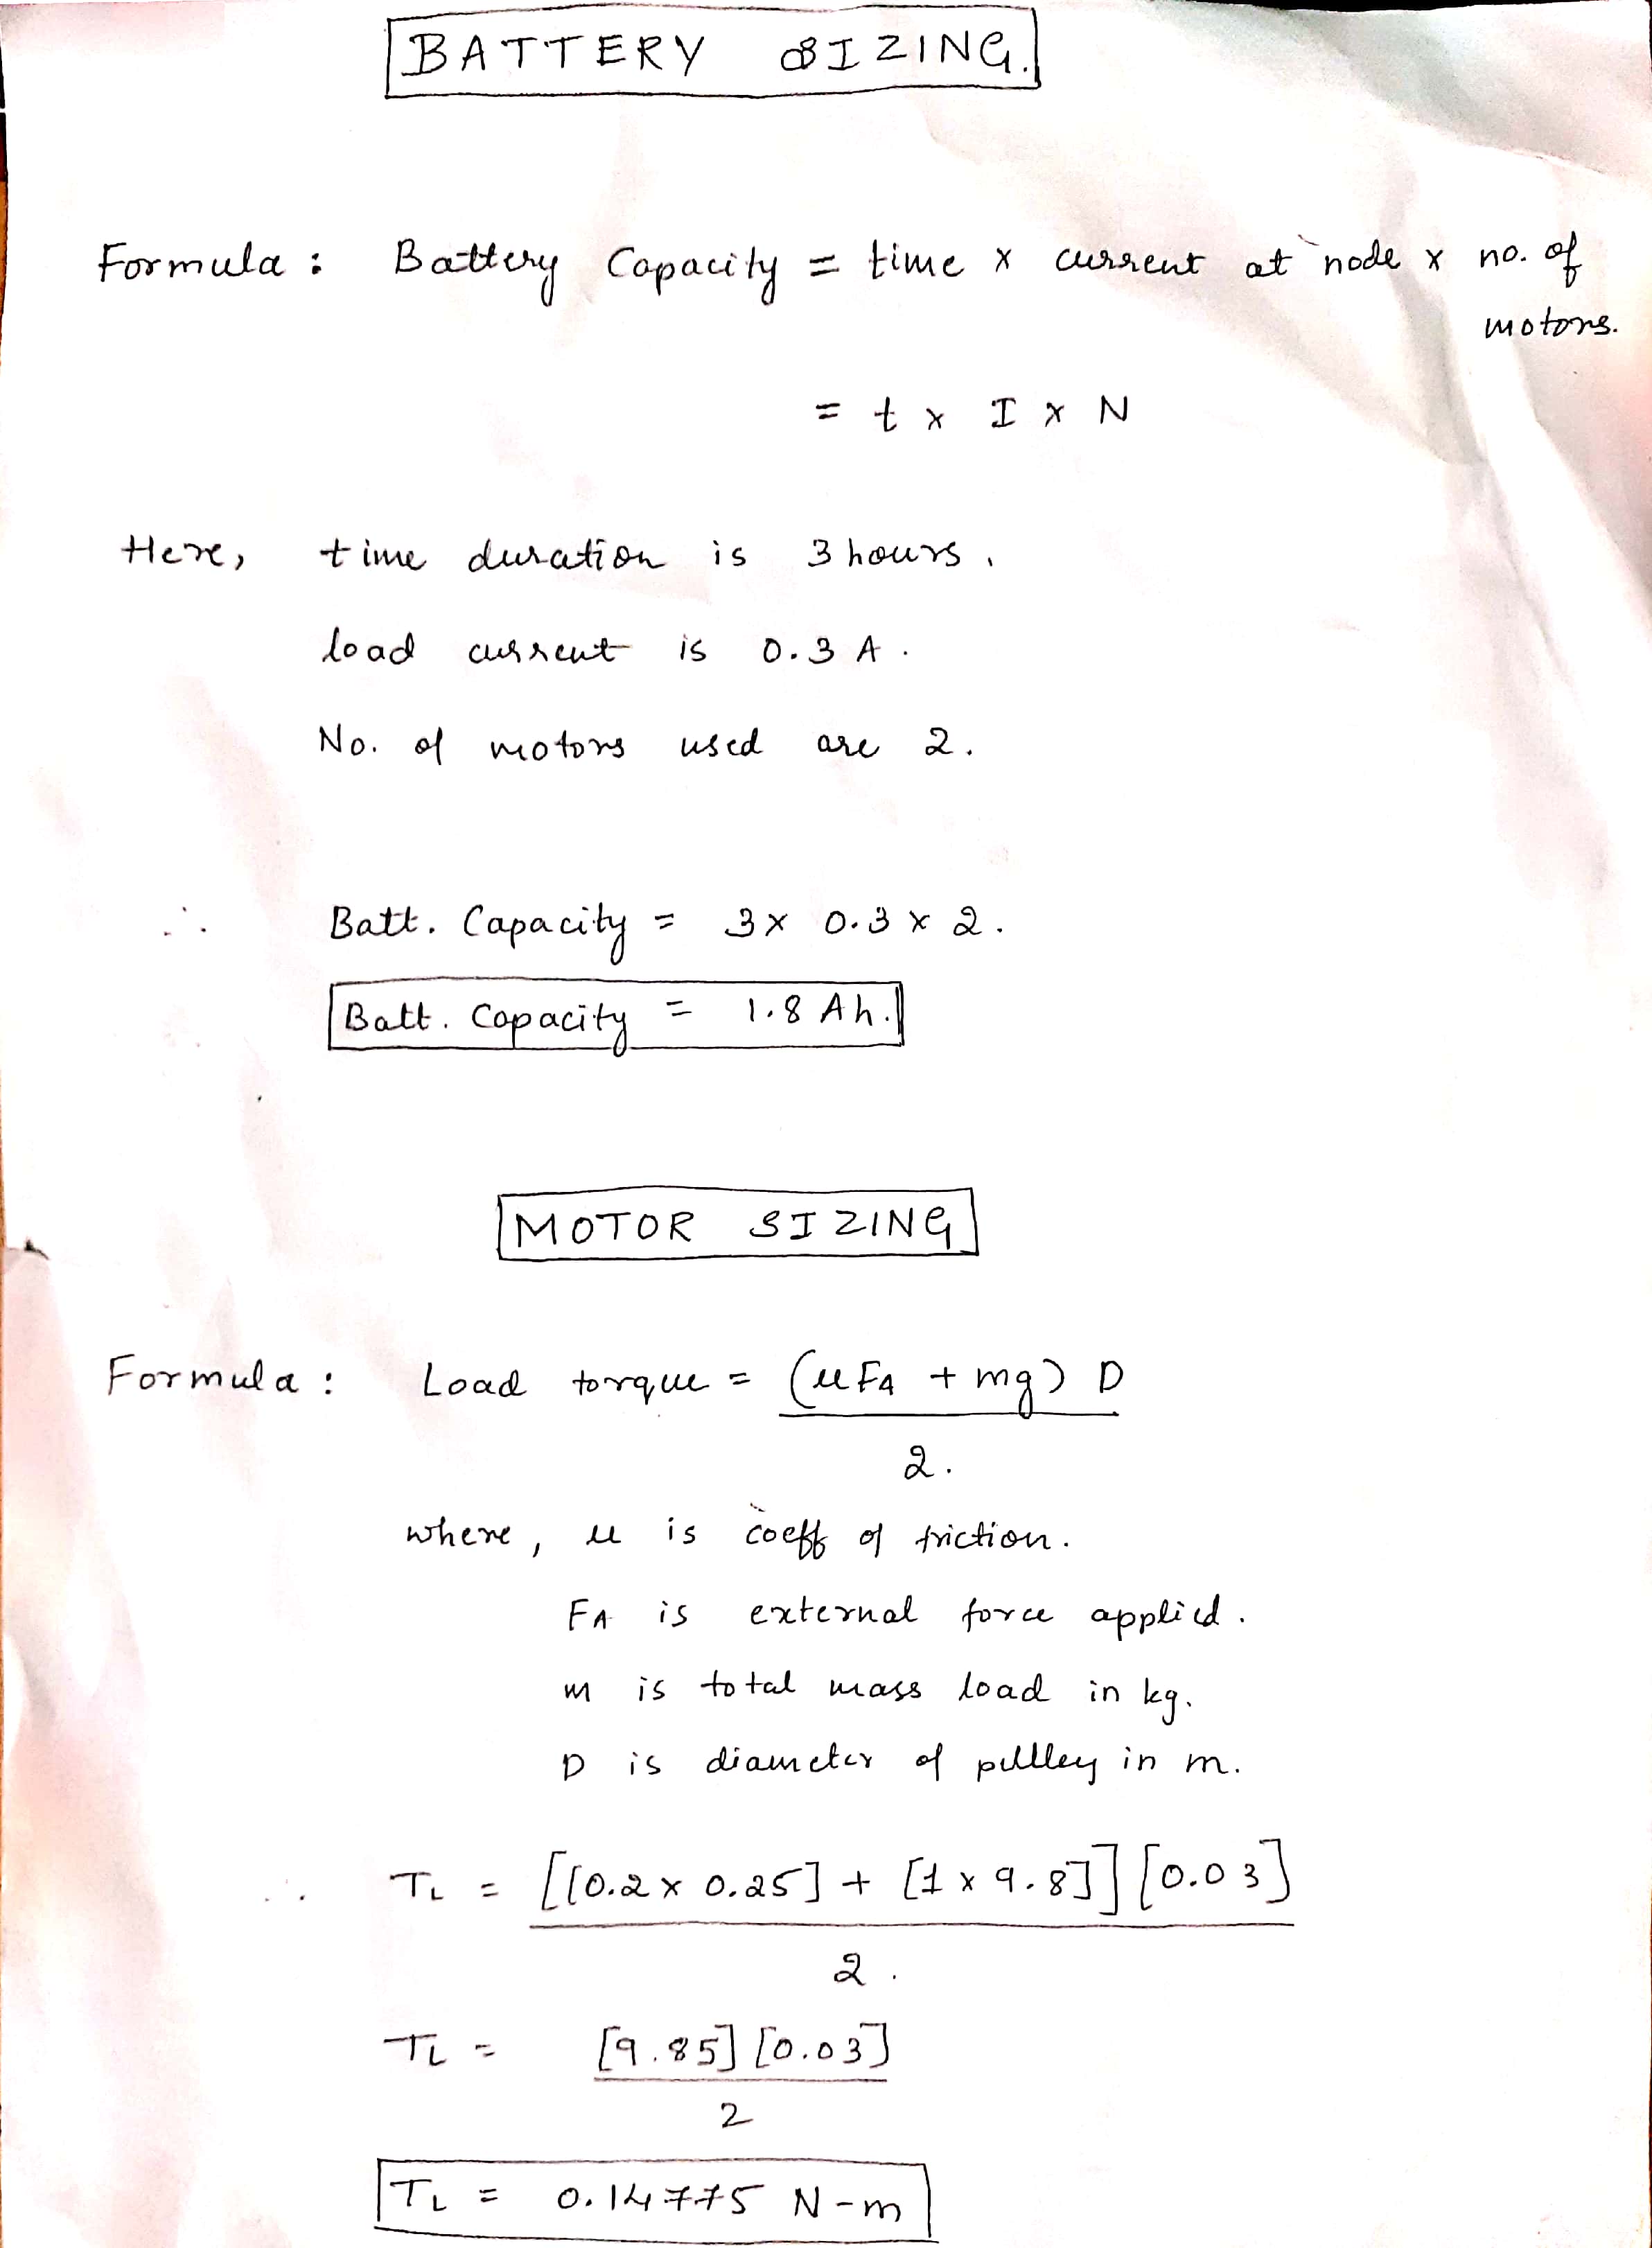 BATTERY SIZING.
Formula : Battery Capacity = time x current at node x no. of
motors.
= t x I x N
Here, time duration is 3 hours.
load current is 0.3 A.
No. of motors used are 2.
∴ Batt. Capacity = 3 x 0.3 x 2.
Batt. Capacity = 1.8 Ah.
MOTOR SIZING
Formula : Load torque = (μFA + mg) D
2.
where, μ is coeff of friction.
FA is external force applied.
m is total mass load in kg.
D is diameter of pulley in m.
∴ TL = [[0.2 x 0.25] + [1 x 9.8]] [0.03]
2.
TL = [9.85] [0.03]
2
TL = 0.14775 N-m